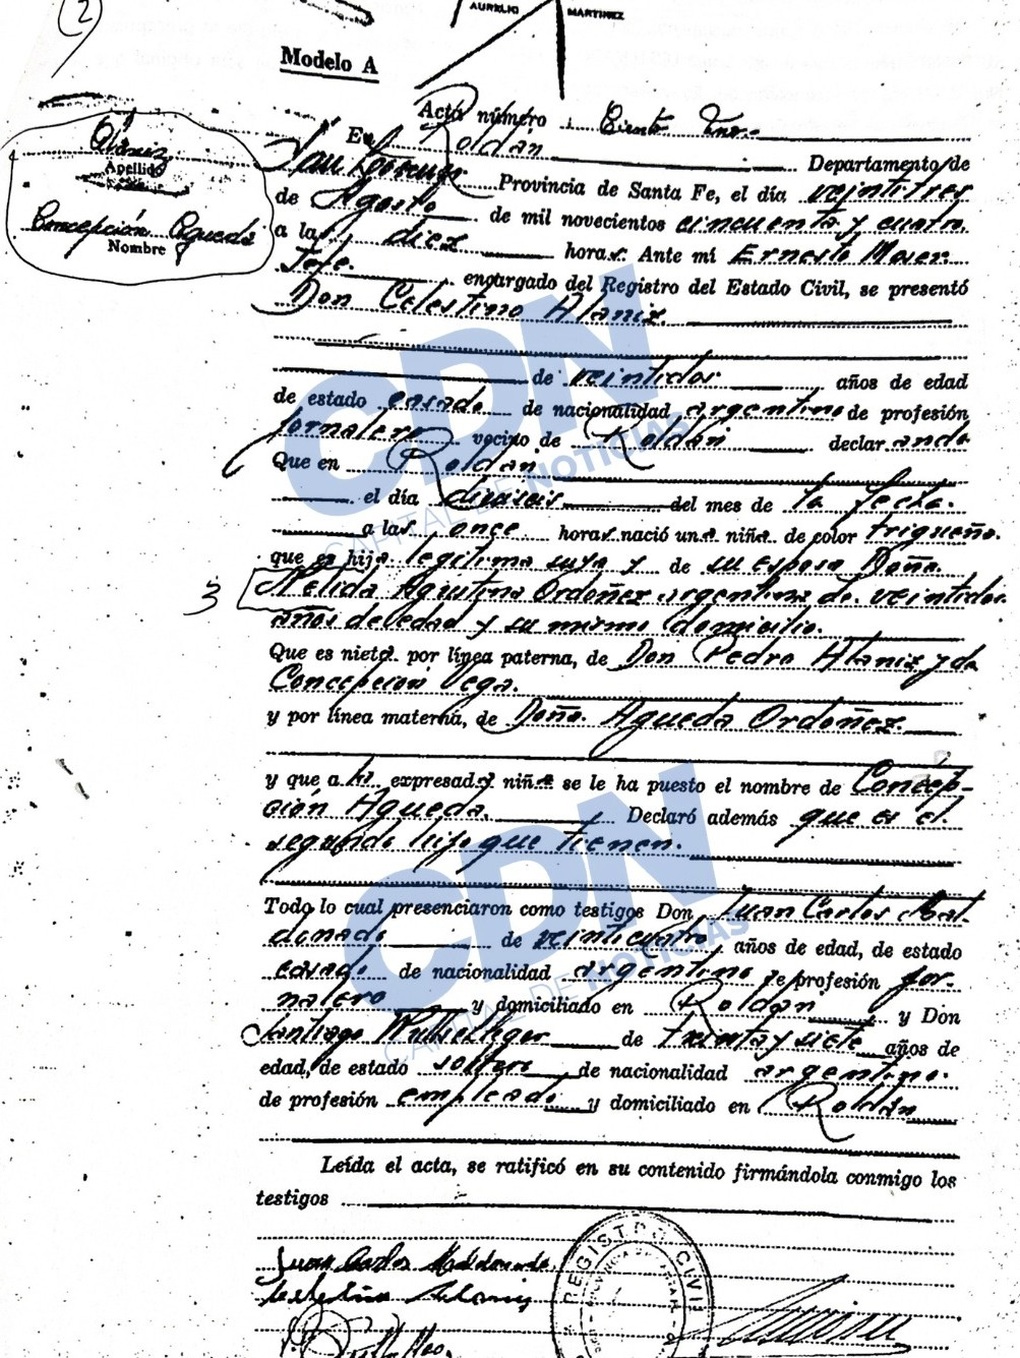 (2)
AURELIO MARTINEZ
Modelo A
Acta número Ciento Tres
En Roldán Departamento de
San Lorenzo Provincia de Santa Fe, el día veintitres
de Agosto de mil novecientos cincuenta y cuatro
a las diez horas. Ante mí Ernesto Moser
Jefe. encargado del Registro del Estado Civil, se presentó
Don Celestino Alaniz.
de veintidos años de edad
de estado casado de nacionalidad argentino de profesión
jornalero vecino de Roldán declarando
Que en Roldán
el día dieciseis del mes de la fecha.
a las once horas nació una niña de color trigueño.
que es hija legítima suya y de su esposa Doña.
3 Nelida Agustina Ordoñez argentina de veintidos
años de edad y su mismo domicilio.
Que es nieta por línea paterna, de Don Pedro Alaniz y de
Concepción Vega.
y por línea materna, de Doña Agueda Ordoñez.
y que a la expresada niña se le ha puesto el nombre de Concep-
ción Agueda. Declaró además que es el
segundo hijo que tienen.
Todo lo cual presenciaron como testigos Don Juan Carlos Mal-
donado de veinticuatro años de edad, de estado
casado de nacionalidad argentino de profesión jor-
nalero y domiciliado en Roldán y Don
Santiago de treinta y siete años de
edad, de estado soltero de nacionalidad argentino.
de profesión empleado y domiciliado en Roldán
Leída el acta, se ratificó en su contenido firmándola conmigo los
testigos
Juan Carlos Maldonado
Celestino Alaniz
Apellido
Concepción Agueda
Nombre
REGISTRO CIVIL
CDN
CAPITAL DE NOTICIAS
CDN
CAPITAL DE NOTICIAS